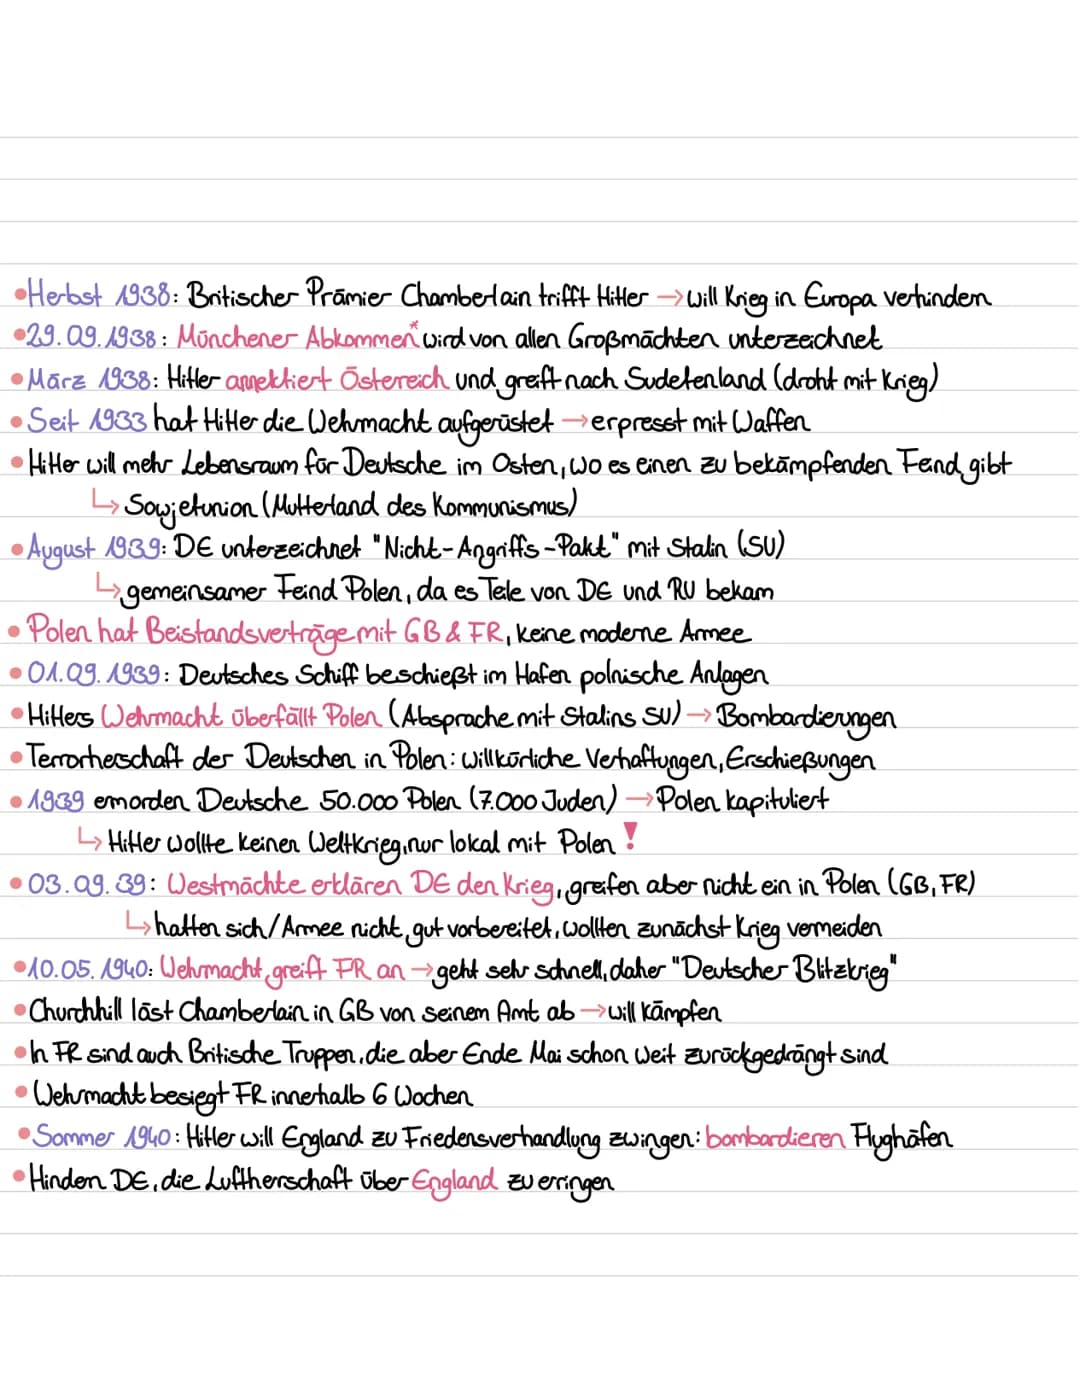 •Herbst 1938: Britischer Prämier Chamberlain trifft Hitler → will Krieg in Europa verhindern
•29.09.1938: Münchener Abkommen* wird von allen Großmächten unterzeichnet
•März 1938: Hitler annektiert Östereich und greift nach Sudetenland (droht mit Krieg)
•Seit 1933 hat Hitler die Wehrmacht aufgerüstet → erpresst mit Waffen
•Hitler will mehr Lebensraum für Deutsche im Osten, wo es einen zu bekämpfenden Feind gibt
↳ Sowjetunion (Mutterland des Kommunismus)
•August 1939: DE unterzeichnet "Nicht-Angriffs-Pakt" mit Stalin (SU)
↳ gemeinsamer Feind Polen, da es Teile von DE und RU bekam
•Polen hat Beistandsverträge mit GB & FR, keine moderne Armee
•01.09.1939: Deutsches Schiff beschießt im Hafen polnische Anlagen
•Hitlers Wehrmacht überfällt Polen (Absprache mit Stalins SU) → Bombardierungen
•Terrorherschaft der Deutschen in Polen: willkürliche Verhaftungen, Erschießungen
•1939 ermorden Deutsche 50.000 Polen (7.000 Juden) → Polen kapituliert
↳ Hitler wollte keinen Weltkrieg, nur lokal mit Polen !
•03.09.39: Westmächte erklären DE den Krieg, greifen aber nicht ein in Polen (GB, FR)
↳ hatten sich/Armee nicht gut vorbereitet, wollten zunächst Krieg vermeiden
•10.05.1940: Wehrmacht greift FR an → geht sehr schnell, daher "Deutscher Blitzkrieg"
•Churchhill löst Chamberlain in GB von seinem Amt ab → will kämpfen
•In FR sind auch Britische Truppen, die aber Ende Mai schon weit zurückgedrängt sind
•Wehrmacht besiegt FR innerhalb 6 Wochen
•Sommer 1940: Hitler will England zu Friedensverhandlung zwingen: bombardieren Flughäfen
•Hindern DE, die Luftherrschaft über England zu erringen